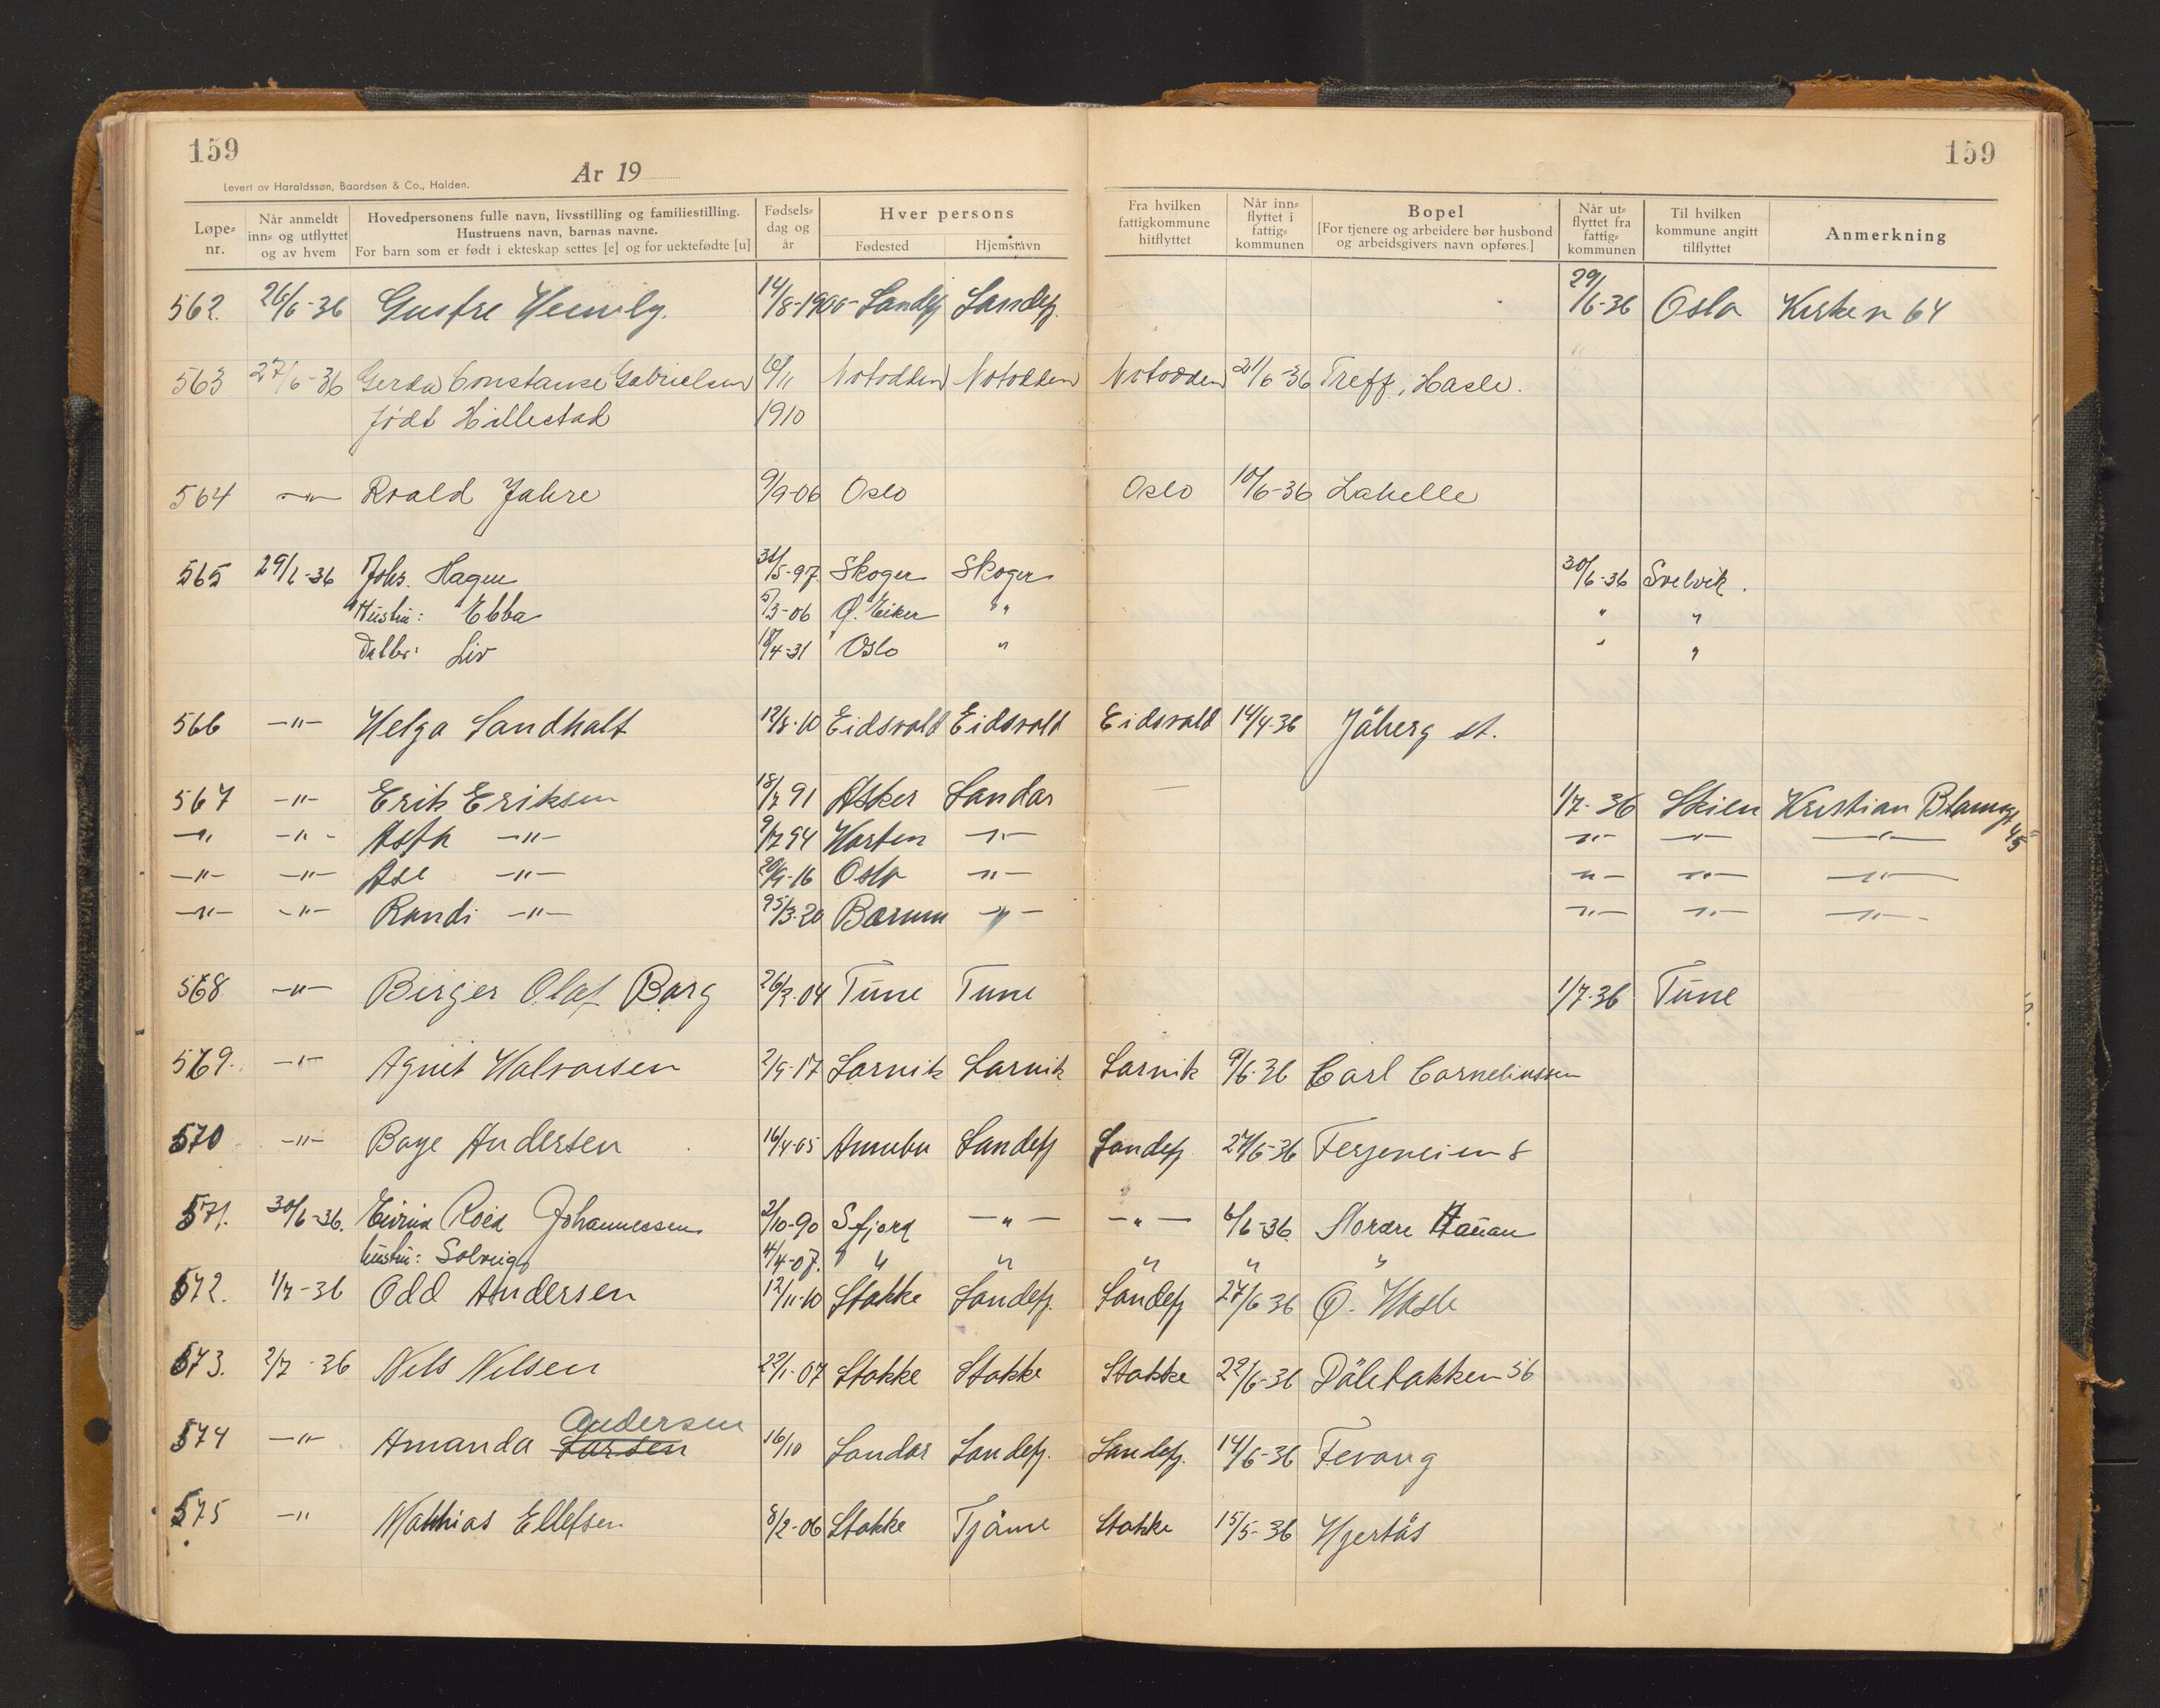 159
159
År 19
Levert av Haraldssøn, Baardsen & Co., Halden.
Løpe-nr. Når anmeldt inn- og utflyttet og av hvem Hovedpersonens fulle navn, livsstilling og familiestilling. Hustruens navn, barnas navne. For barn som er født i ekteskap settes [e] og for uektefødte [u] Fødsels-dag og år Hver persons Fødested Hjemstavn Fra hvilken fattigkommune hitflyttet Når inn-flyttet i fattig-kommunen Bopel [For tjenere og arbeidere bør husbond og arbeidsgivers navn opføres.] Når ut-flyttet fra fattig-kommunen Til hvilken kommune angitt tilflyttet Anmerkning
562. 26/6-36 14/8-1900- Sandefj Sandefj. 29/6-36 Oslo 64
563 27/6-36 Gerda Constanse Gabrielsen 10/11 Notodden Notodden Notodden 21/6-36 Treff, Hasle.
født Hillestad 1910
564 -"- Roald Jahre 9/9-06 Oslo Oslo 10/6-36 Lahelle
565 29/6-36 Johs. Hagen 31/5-97 Skoger Skoger 30/6-36 Svelvik.
Hustru: Ebba 5/3-06 Ø. Eiker " " "
Datter: Liv 18/4-31 Oslo " " "
566 -"- Helga Sandholt 12/8-10 Eidsvold Eidsvold Eidsvold 14/4-36 Jåberg st.
567 -"- Erik Eriksen 18/7 91 Asker Sandar 1/7-36 Skien Kristian Blomsgt 45
-"- -"- -"- 9/12 94 Horten -"- -"- -"- -"-
-"- -"- Åse -"- 20/9-16 Oslo -"- -"- -"- -"-
-"- -"- Randi -"- 25/3-20 Bærum -"- -"- -"- -"-
568 -"- Birger Olaf Borg 26/3-04 Tune Tune 1/7-36 Tune
569. -"- Agnet Halvorsen 2/9-17 Larvik Larvik Larvik 9/6-36 Carl Corneliussen
570 -"- Boye Andersen 16/4-05 Annebu Sandefj Sandefj 27/6-36 Ferjeveien 8
571. 30/6-36. Roed Johannessen 2/10-90 S.fjord -"- -"- 6/6-36 Nordre Hauan
hustru: Solveig 4/4-07. " " " " "
572. 1/7-36 Odd Andersen 12/11-10 Stokke Sandefj. Sandefj 27/6-36 Ø. Hasle
573. 2/7-36 Nils Nilsen 22/1-07 Stokke Stokke Stokke 22/6-36 Pålebakken 56
Andersen
574 -"- Amanda Larsen 16/10 Sandar Sandefj. Sandefj. 14/6-36 Fevang
575 -" Mathias Ellefsen 8/2-06 Stokke Tjøme Stokke 15/5-36 Hjertås